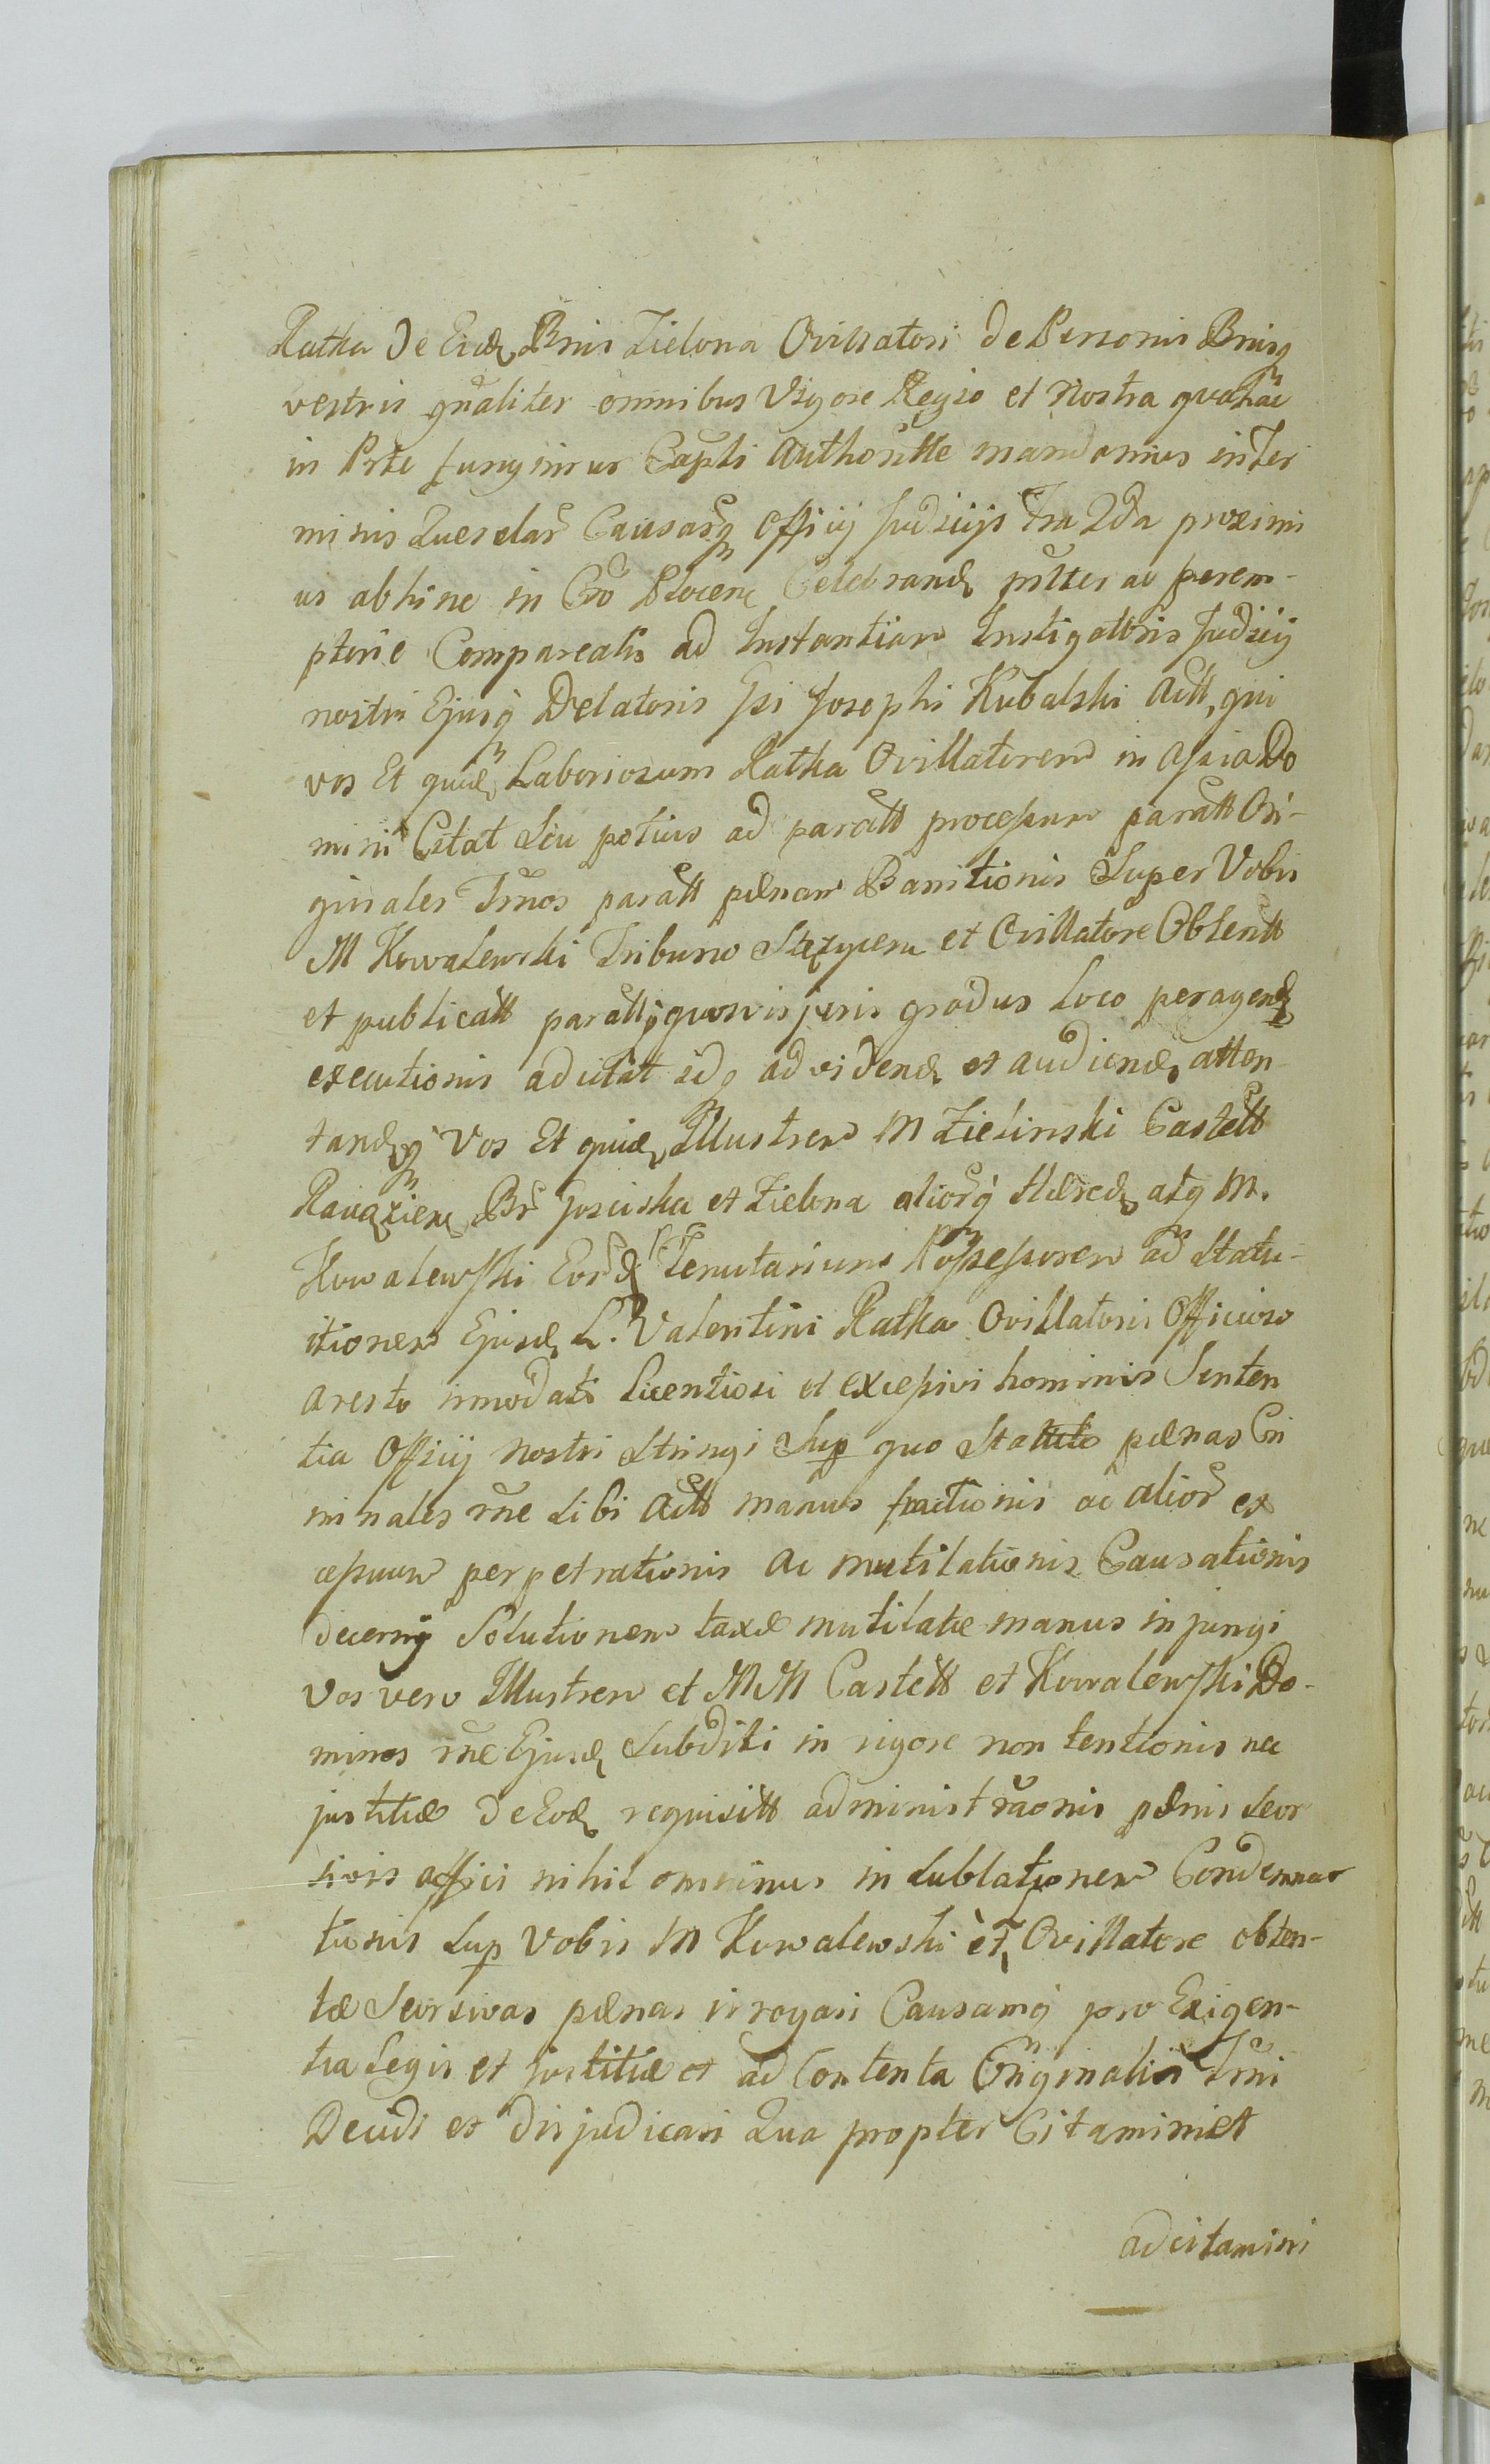 Ratka de Eisd Bnis Zielona Ovillatori de Personis Bnisq
vestris gnaliter omnibus Vigore Regio et Nostra qua hac
in Prte fungimur Captli Authoritte mandamus in Ter
minis Querelar Causarq Officij Judicijs Fra 2da proximi
us abhinc in Cro Plocen Celebrand pnltter ac perem-
ptorie Compareatis ad Instantiam Instigattoris Judicij
nostri Ejusq Delatoris Gsi Josephi Kubalski Actt, qui
vos Et quid Laboriosum Ratka Ovillatorem in assia Do
mini Citat Seu potius ad paratt processum paratt Ori-
ginales Trnos paratt pænam Banitionis Super Vobis
M Kowalewski Tribuno Stezycen et Ovillatore Obtentt
et publicatt paratt quosvis juris gradus loco peragend
executionis adcitat idq ad vidend et audiend, atten
tandq Vos Et quid Illustrem M Zielinski Castell
Ravazien Br Josciska et Zielona aliorq Hæred atq M.
Kowalewski Eord Tenutarium Possessorem ad Statu-
itionem Ejusd L. Valentini Ratka Ovillatoris Officioso
aresto innodati licentiosi et excessivi hominis Senten
tia Officij Nostri Stringi Sup quo Statuto pænas Cri
minales rne Sibi Actt manus fractionis ac alior ex
cessuum perpetrationis ac mutilationis Causationis
decerni Solutionem taxæ mutilatæ manus injungi
Vos vero Illustrem et MM Castell et Kowalewski Do-
minos rne Ejusd Subditi in rigore non tentionis nec
justitiæ de Eod requisitt administraonis pænis Seor
sivis affici nihil ominus in Sublationem Condemna
tionis Sup Vobis M Kowalewski et Ovillatore obten-
tæ Seorsivas pænas irrogari Causamq pro Exigen-
tia Legis et justitiæ et ad Contenta Originalis Trni
Decidi et dirjudicari Qua propter Citamini et
adcitamini